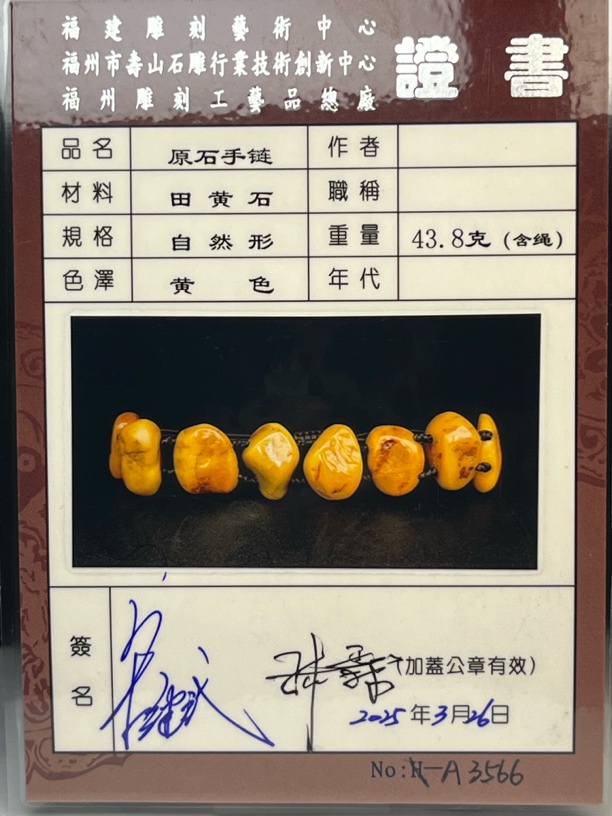 福建雕刻藝術中心
福州市壽山石雕行業技術創新中心
福州雕刻工藝品總廠
證書
品名 原石手链 作者
材料 田黄石 職稱
規格 自然形 重量 43.8克(含绳)
色澤 黄色 年代
簽名
(加蓋公章有效)
2025年3月26日
No:H-A3566